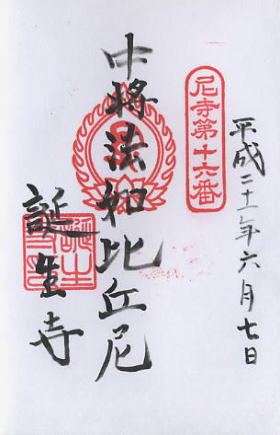 尼寺第十六番
平成二十一年六月七日
中将法如比丘尼
誕生寺